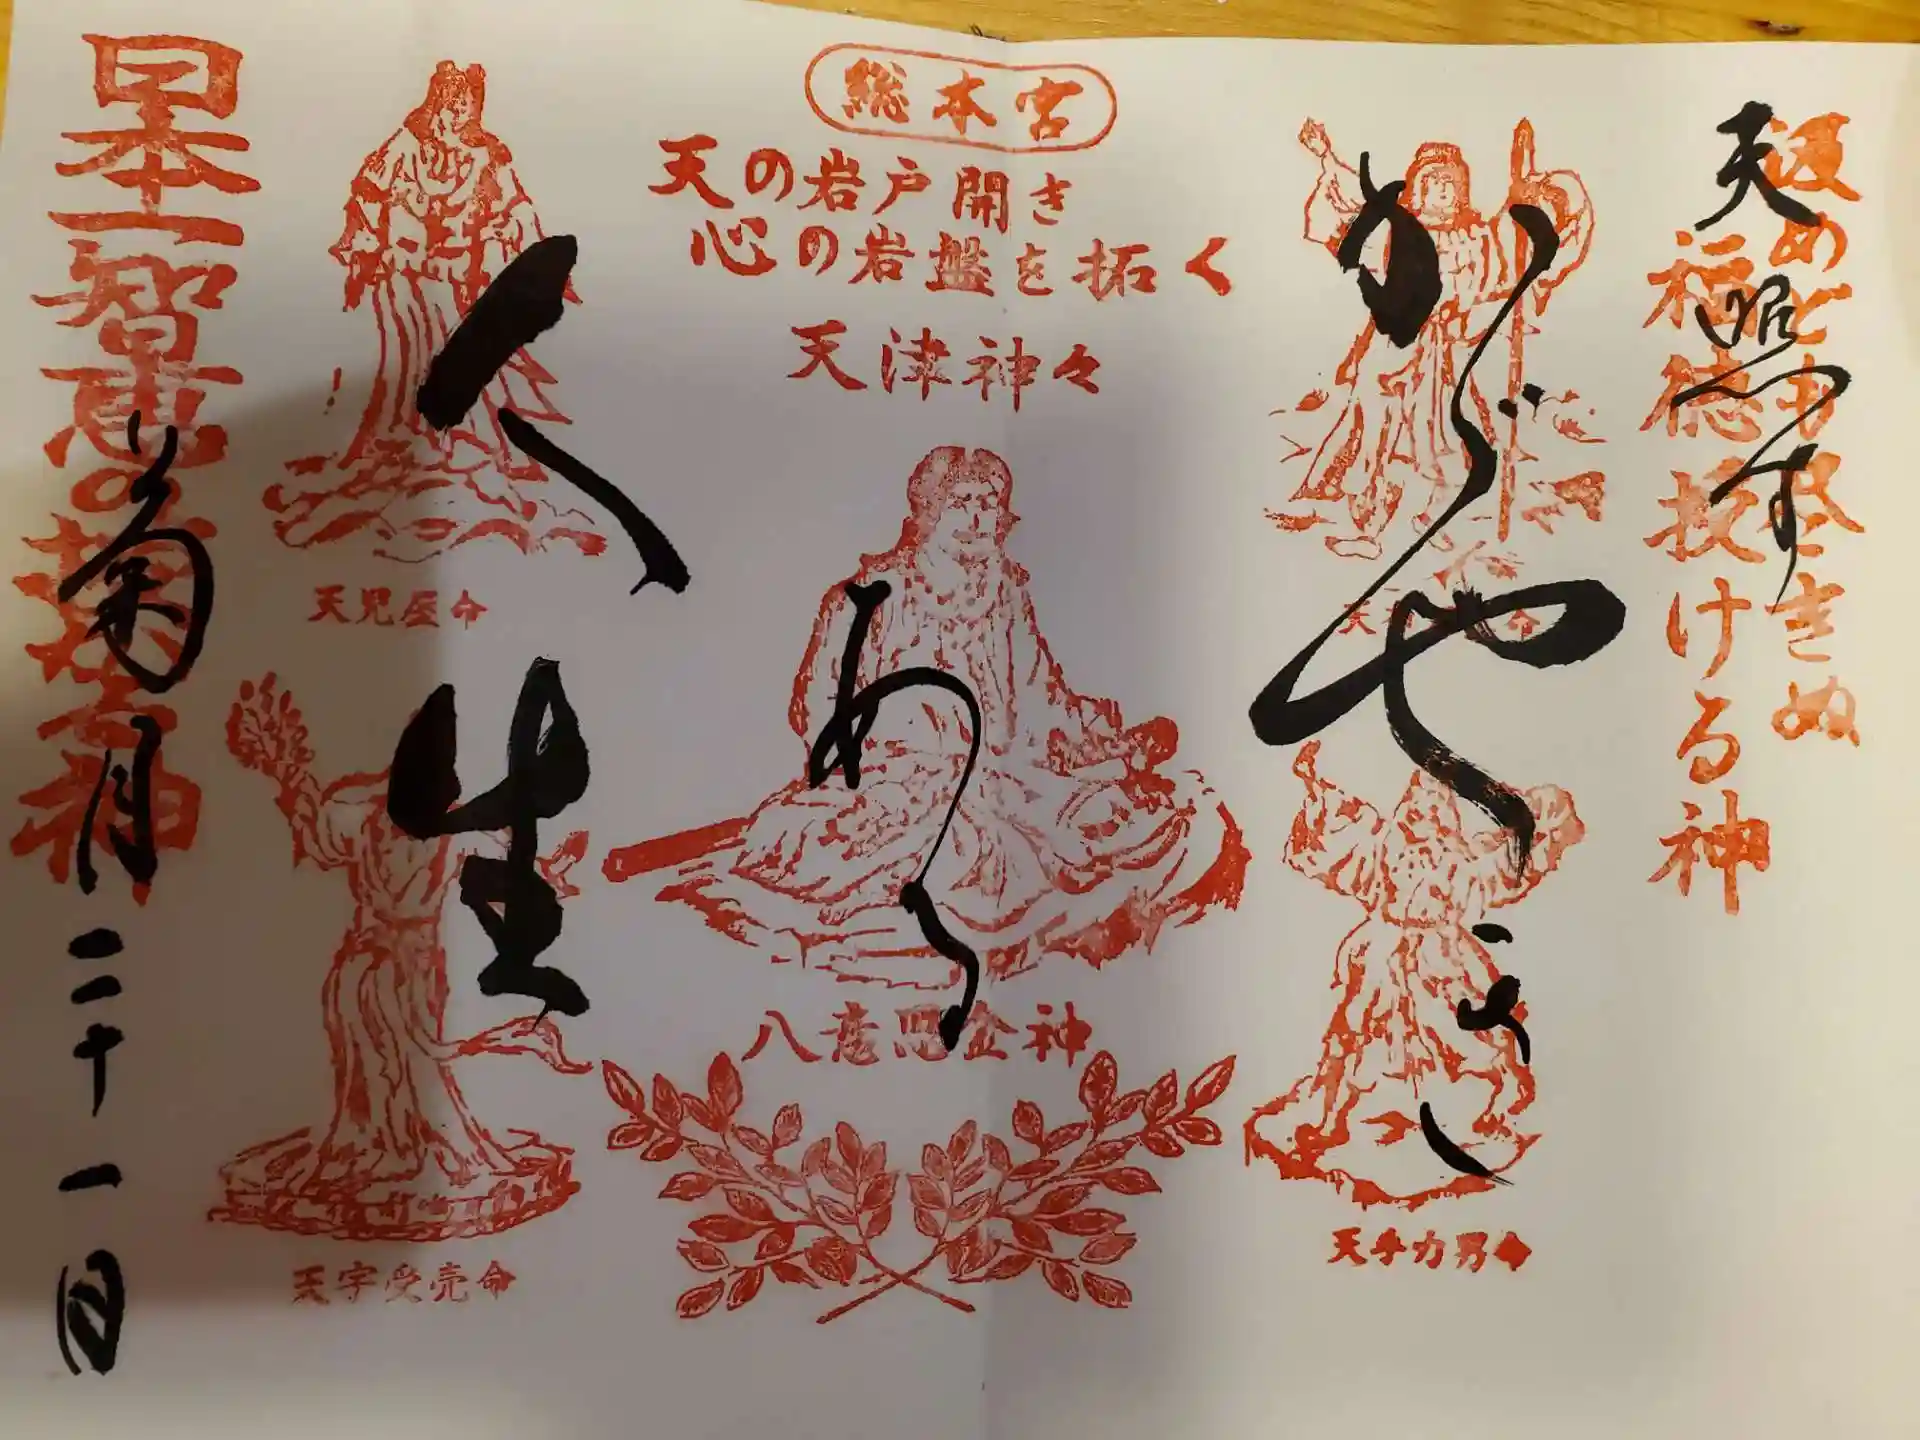 総本宮
天の岩戸開き
心の岩盤を拓く
天津神々
汲めども尽きぬ
福徳授ける神
天照す
かゞやき
あり
人生
天手力男命
八意思金神
天児屋命
天宇受売命
日本一智恵の
菊月二十一日